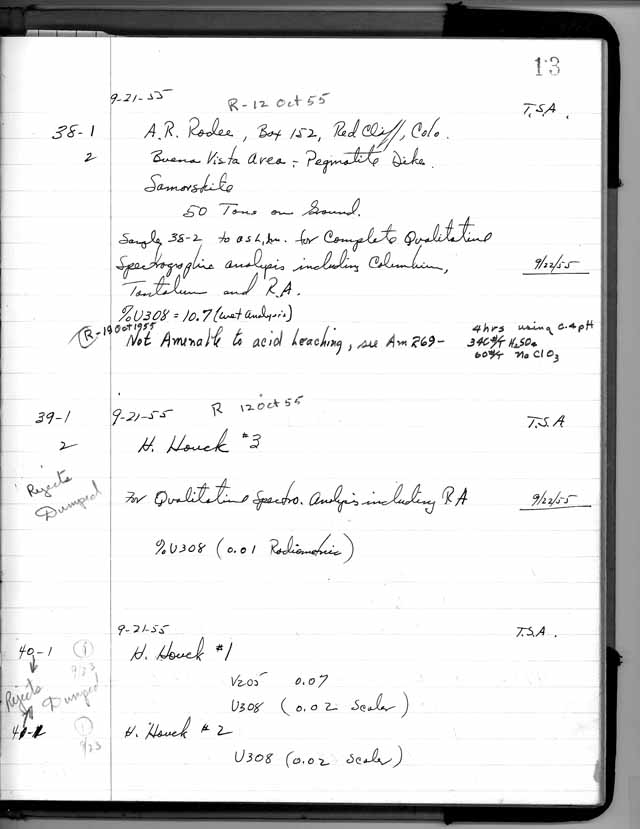 13
9-21-55 R-12 Oct 55 T.S.A.
38-1 A.R. Rodee, Box 152, Red Cliff, Colo.
2 Buena Vista Area - Pegmatite Dike.
Samarskite
50 Tons on Ground.
Sample 38-2 to for Complete Qualitative
Spectrographic analysis including Columbium, 9/22/55
Tantalum and R.A.
% U308 = 10.7 (wet analysis)
R-19 Oct 1955
Not Amenable to acid leaching, see Am 269- 4 hrs using 0.4 pH
346 #/T H2SO4
60 #/T NaClO3
39-1 9-21-55 R 12 Oct 55 T.S.A
2 H. Houck #3
Rejects
Dumped
For Qualitative Spectro. Analysis including RA 9/22/55
% U308 (0.01 Radiometric)
9-21-55 T.S.A.
40-1 1 H. Houck #1
9/23
Rejects
Dumped
V205 0.07
U308 (0.02 Scaler)
1 H. Houck #2
9/23
U308 (0.02 Scaler)